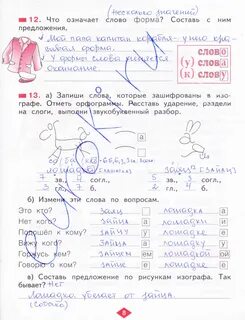 (Несколько значений)
12. Что означает слово форма? Составь с ним
предложения.
Мой папа капитан корабля – у него кра-
сивая форма.
У форма слова меняется
окончание.
слово
(у) слова
(к) слову
13. а) Запиши слова, которые зашифрованы в изо-
графе. Отметь орфограммы. Расставь ударение, раздели
на слоги, выполни звукобуквенный разбор.
лошадка
заяц
7 зв., 4 согл.,
3 гл., 7 б.
5 зв., 3 согл.,
2 гл., 4 б.
б) Измени эти слова по вопросам.
Это кто? заяц лошадка а
Нет кого? зайца а лошадки и
Подошёл к кому? зайцу у лошадке е
Вижу кого? зайца а лошадку у
Горжусь кем? зайцем ем лошадкой ой
Говорю о ком? зайце е лошадке е
в) Составь предложение по рисункам изографа. Так
бывает? Нет
Лошадка убегает от зайца.
8